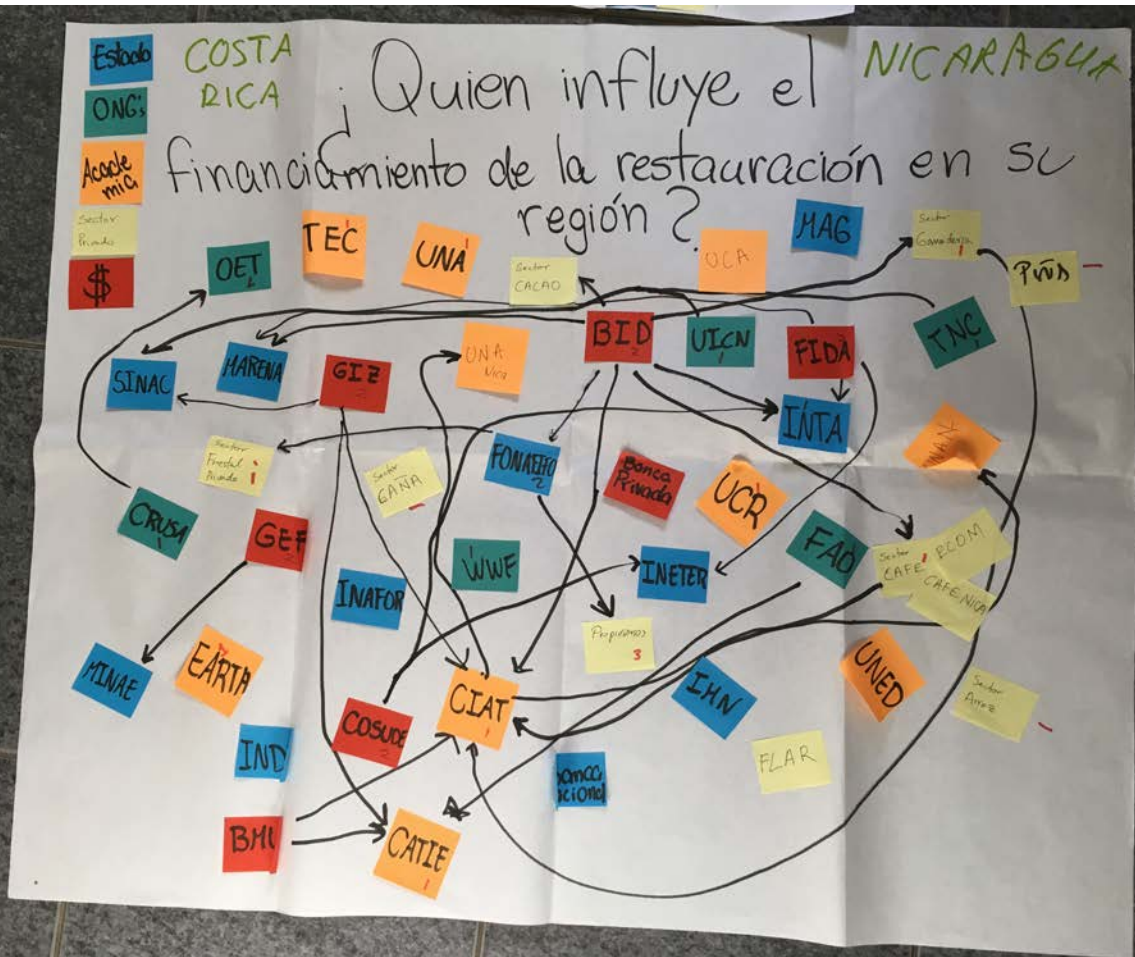 Estado
ONG's
Acade
mia
Sector
Privado
$
COSTA
RICA
NICARAGUA
¿Quien influye el
financiamiento de la restauración en su
región?
OET
TEC
UNA
Sector
CACAO
UCA
MAG
Sector
Ganadería
PIÑA
SINAC
MARENA
GIZ
2
UNA
Nica
BID
2
UICN
FIDA
TNC
INTA
Sector
Forestal
Privado
Sector
CAÑA
FONAFIFO
2
Banca
Privada
UCR
CRUSA
GEF
2
INAFOR
WWF
INETER
FAO
Sector
CAFE
ECOM
CAFE NICA
MINAE
EARTA
COSUDE
2
CIAT
1
3
IHN
UNED
Sector
Arroz
IND
FLAR
BMU
CATIE
1